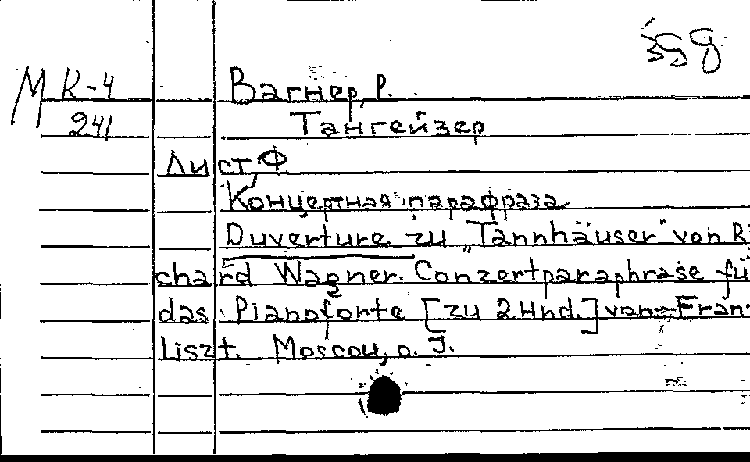 М К-4
241
Вагнер, Р.
Тангейзер
Лист, Ф.
Концертная парафраза
Ouverture zu „Tannhäuser" von Ri
chard Wagner. Conzertparaphrase fü
das Pianoforte [zu 2 Hnd.] von Fran
Liszt. Moscou, o. J.